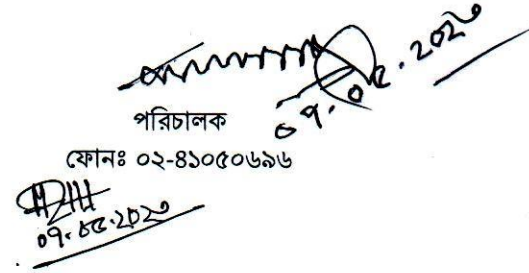 ০৭.০৫.২০২৩
পরিচালক
ফোনঃ ০২-৪১০৫০৬৯৬
০৭.০৫.২০২৩